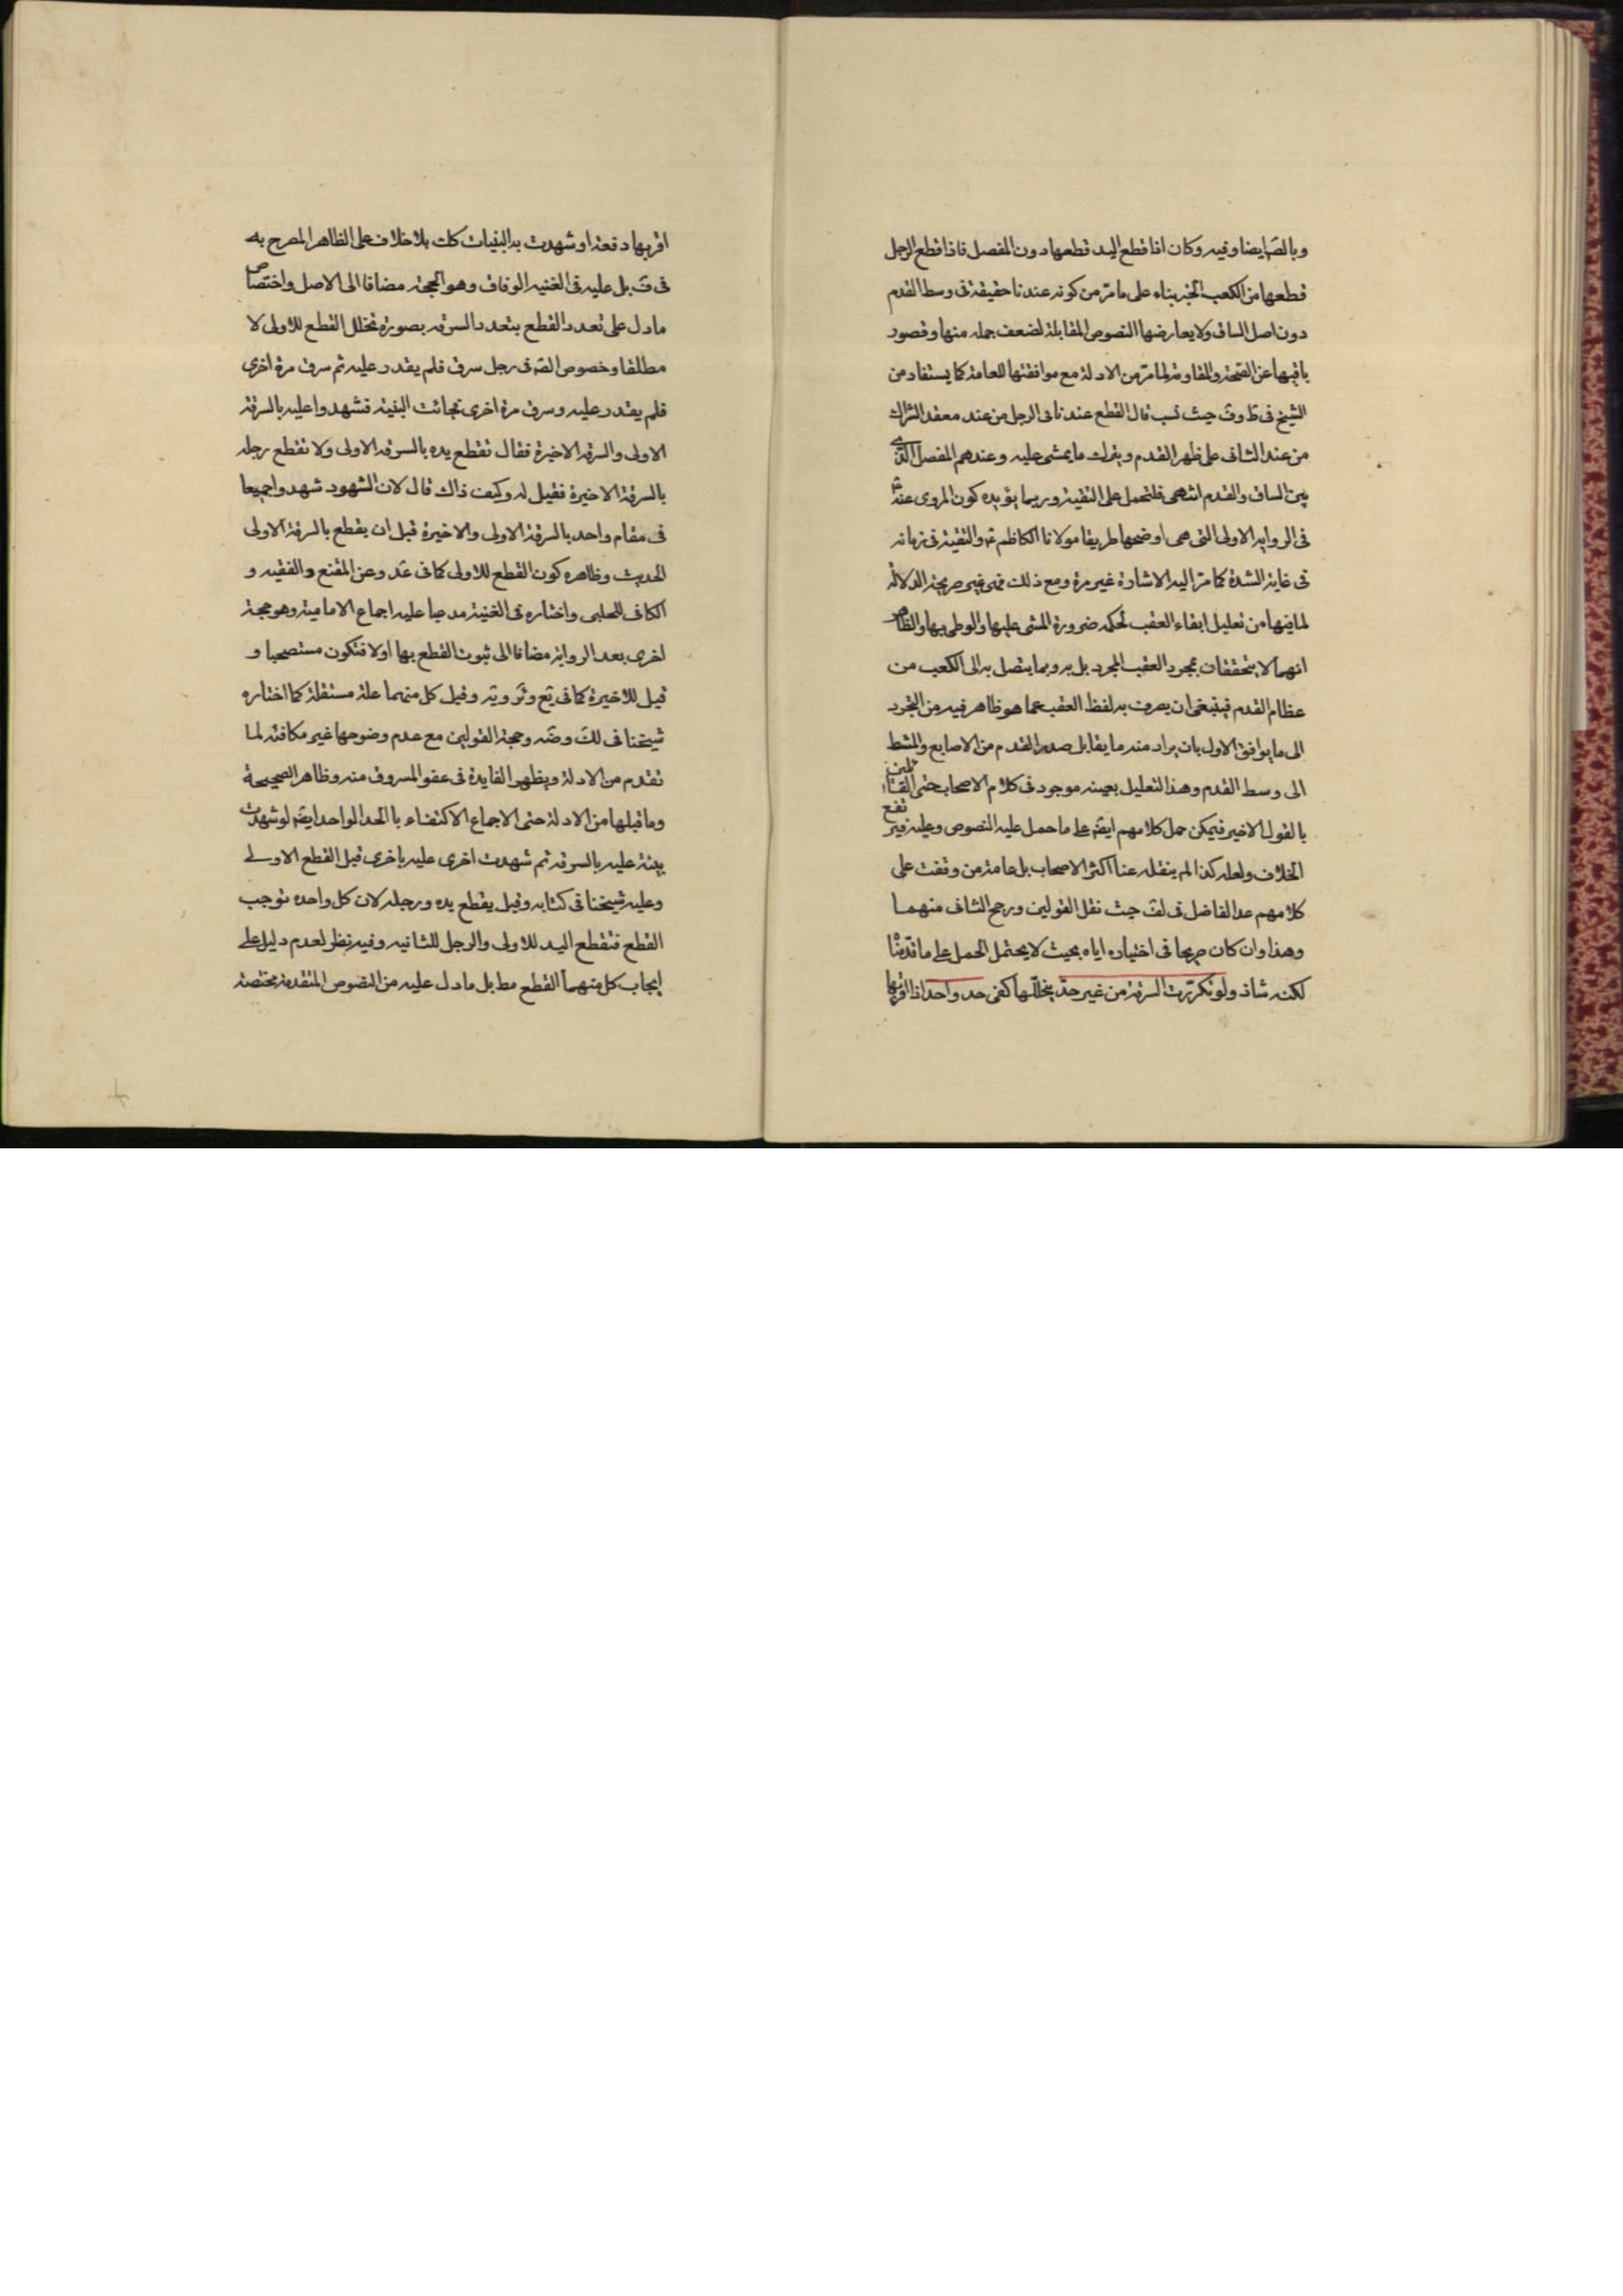 وبالصّ ايضا وفيه وكان اذا قطع اليد قطعها دون المفصل فاذا قطع الرجل
قطعها من الكعب الخبر بناء على ما مرّ من كونه عندنا حقيقة فى وسط القدم
دون اصل الساق ولا يعارضها النصوص المقابلة لضعف جملة منها وقصور
باقيها عن الصّحة والمقاومة لما مرّ من الادلة مع موافقتها للعامة كما يستفاد من
الشيخ فى ط وف حيث نسب قال القطع عندنا فى الرجل من عند معقد الشراك
من عند الشاف على ظهر القدم ويترك ما يمشى عليه وعندهم المفصل الّذى
بين الساق والقدم انتهى فلتحمل على التقية وربما يؤيده كون المروى عنه
فى الرواية الاولى التى هى اوضحها طريقا مولانا الكاظم ع والتقية فى زمانه
فى غاية الشدة كما مرّ اليه الاشارة غير مرة ومع ذلك فهى غير صريحة الدلالة
لما فيها من تعليل ابقاء العقب لحكمة ضرورة المشى عليها والوطى بها والظاهر
انهما لا يتحققان بمجرد العقب المجرد بل به وبما يتصل به الى الكعب من
عظام القدم فينبغى ان يصرف به لفظ العقب عما هو ظاهر فيه من التجرد
الى ما يوافق الاول بان يراد منه ما يقابل صدر القدم من الاصابع والمشط
الى وسط القدم وهذا التعليل بعينه موجود فى كلام الاصحاب حتى القائلين
بالقول الاخير فيمكن حمل كلامهم ايضَ على ما حمل عليه النصوص وعليه فيرتفع
الخلاف ولعله كذا لم ينقله عنا اكثر الاصحاب بل عامة من وقفت على
كلامهم عدا الفاضل فى لف حيث نقل القولين ورجح الثانى منهما
وهذا وان كان صريحا فى اختياره اياه بحيث لا يحتمل الحمل على ما قدّمنا
لكنه شاذ ولو تكرّرت السرقة من غير حدّ يتخلّلها كفى حد واحد اذا اقر بها
اقر بها دفعة او شهدت به البينات كك بلا خلاف على الظاهر المصرح به
فى ف بل عليه فى الغنية الوفاق وهو الحجة مضافا الى الاصل واختصاص
ما دل على تعدد القطع بتعدد السرقة بصورة تخلل القطع للاولى لا
مطلقا وخصوص الصّ فى رجل سرق فلم يقدر عليه ثم سرق مرة اخرى
فلم يقدر عليه وسرق مرة اخرى فجائت البينة فشهدوا عليه بالسرقة
الاولى والسرقة الاخيرة فقال تقطع يده بالسرقة الاولى ولا تقطع رجله
بالسرقة الاخيرة فقيل له وكيف ذاك قال لان الشهود شهدوا جميعا
فى مقام واحد بالسرقة الاولى والاخيرة قبل ان يقطع بالسرقة الاولى
الحديث وظاهره كون القطع للاولى كما فى عد وعن المقنع والفقيه و
الكافى للحلبى واختاره فى الغنية مدعيا عليه اجماع الامامية وهو حجة
اخرى بعد الرواية مضافا الى ثبوت القطع بها اولا فتكون مستصحبا و
قيل للاخيرة كما فى يع وير ويه وقيل كل منهما علة مستقلة كما اختاره
شيخنا فى لك وضه وحجة القولين مع عدم وضوحها غير مكافئة لما
تقدم من الادلة ويظهر الفايدة فى عفو المسروق منه وظاهر الصحيحة
وما قبلها من الادلة حتى الاجماع الاكتفاء بالحد الواحد ايضَ لو شهدت
بينة عليه بالسرقة ثم شهدت اخرى عليه باخرى قبل القطع الاولى
وعليه شيخنا فى كتابه وقيل يقطع يده ورجله لان كل واحده توجب
القطع فتقطع اليد للاولى والرجل للثانية وفيه نظر لعدم دليل على
ايجاب كل منهما القطع مط بل ما دل عليه من النصوص المتقدمة مختصة